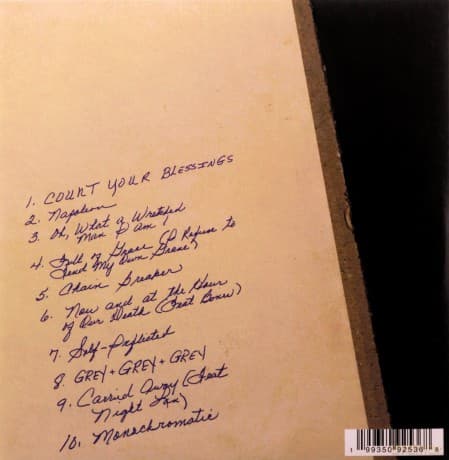 1. COUNT YOUR BLESSINGS
2. Napoleon
3. Oh, What a Wretched
Man I Am!
4. Full of Grace (I Refuse to
Tend My Own Grave)
5. Chain Breaker
6. Now and at the Hour
of Our Death (Feat Bonus)
7. Self-Inflicted
8. GREY + GREY + GREY
9. Carried Away (Feat
Night Fox)
10. Monochromatic
1 99350 92536 8